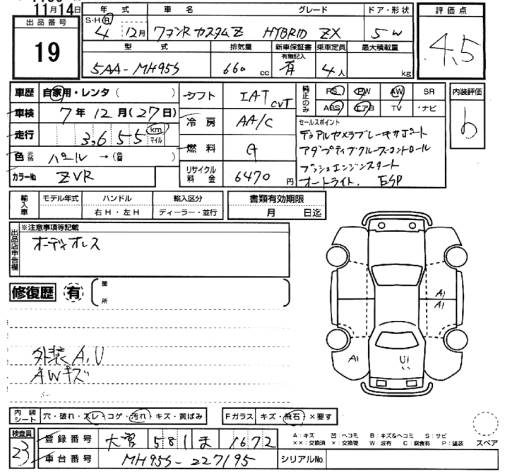 11月14日
出品番号 19
S・H・R 年式 車名 グレード ドア・形状
4年 12月 ワゴンRカスタムZ HYBRID ZX 5W
評価点 4.5
型式 排気量 新車保証書 有無記入 乗車定員 最大積載量
5AA-MH95S 660cc 有 4人 kg
車歴 自家用・レンタ( ) シフト IAT CVT 純正のみ PS PW AW SR 内装評価
車検 7年12月(27日) 冷房 AA/C ABS エアB TV ・ナビ b
走行 3,655 km マイル 燃料 G セールスポイント
デュアルカメラブレーキサポート
アダプティブクルーズコントロール
プッシュエンジンスタート
オートライト、ESP
色 パール→( )
カラーNo ZVR リサイクル料金 6470円
輸入車 モデル年式 ハンドル 輸入区分 書類有効期限
右H・左H ディーラー・並行 月 日迄
出品店申告欄 ※注意事項等記載
オーディオレス
修復歴 有 箇所
外装A,U
AWキズ
A1 A1 A1 U1
内装シート 穴・破れ・スレ・コゲ・汚れ・キズ・黄ばみ Fガラス キズ・飛石・×要す
スペア
検査員 23 登録番号 大宮 581 ま 1672
A:キズ U:ヘコミ B:キズ&ヘコミ S:サビ
車台番号 MH95S-227195 シリアルNo